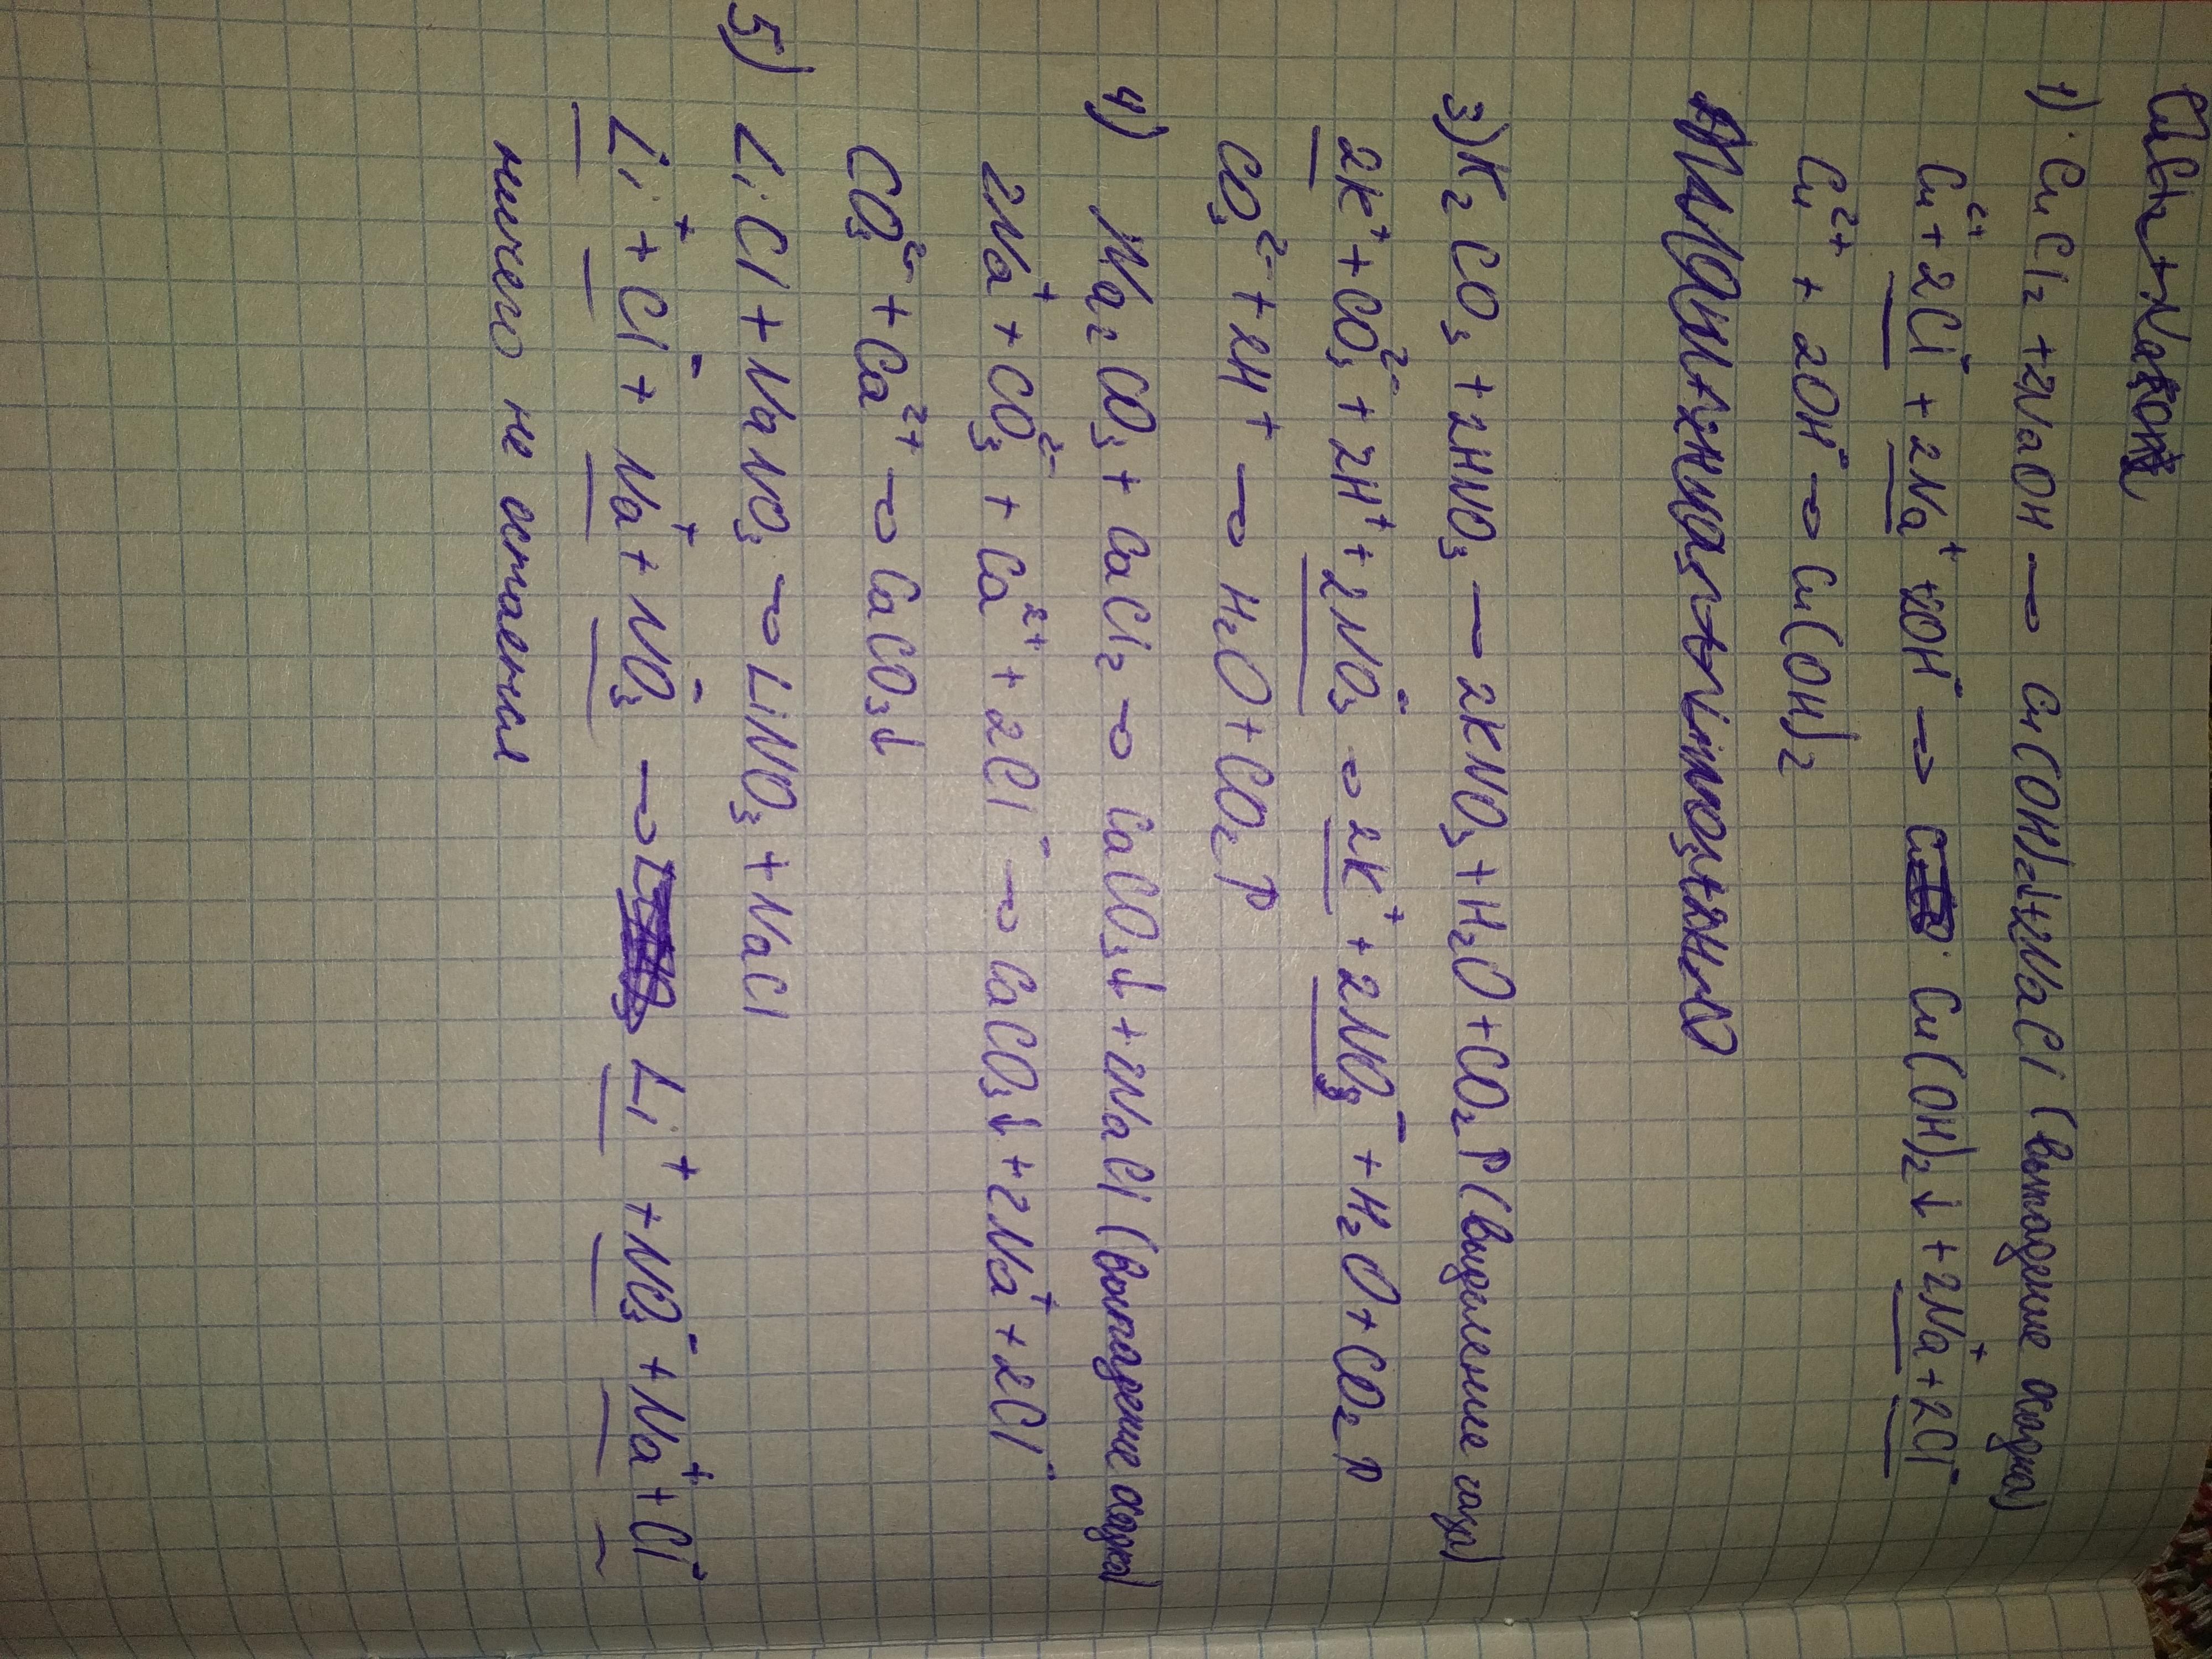 CuCl₂ + Na
1) CuCl₂ + 2NaOH → Cu(OH)₂↓ + 2NaCl (выпадение осадка)
Cu²⁺ + 2Cl⁻ + 2Na⁺ + 2OH⁻ → Cu(OH)₂↓ + 2Na⁺ + 2Cl⁻
Cu²⁺ + 2OH⁻ → Cu(OH)₂
3) K₂CO₃ + 2HNO₃ → 2KNO₃ + H₂O + CO₂↑ (выделение газа)
2K⁺ + CO₃²⁻ + 2H⁺ + 2NO₃⁻ → 2K⁺ + 2NO₃⁻ + H₂O + CO₂↑
CO₃²⁻ + 2H⁺ → H₂O + CO₂↑
4) Na₂CO₃ + CaCl₂ → CaCO₃↓ + 2NaCl (выпадение осадка)
2Na⁺ + CO₃²⁻ + Ca²⁺ + 2Cl⁻ → CaCO₃↓ + 2Na⁺ + 2Cl⁻
CO₃²⁻ + Ca²⁺ → CaCO₃↓
5) LiCl + NaNO₃ → LiNO₃ + NaCl
Li⁺ + Cl⁻ + Na⁺ + NO₃⁻ → Li⁺ + NO₃⁻ + Na⁺ + Cl⁻
ничего не остается